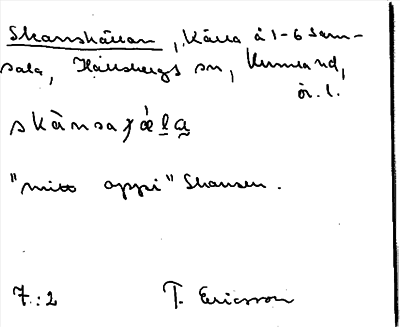 Skanskällan, Källa å 1-6 Sam-
sala, Hallsbergs sn, Kumla hd,
ör. l.
skànsaχǽla
"mitt oppi" Skansen.
7:2 T. Ericsson